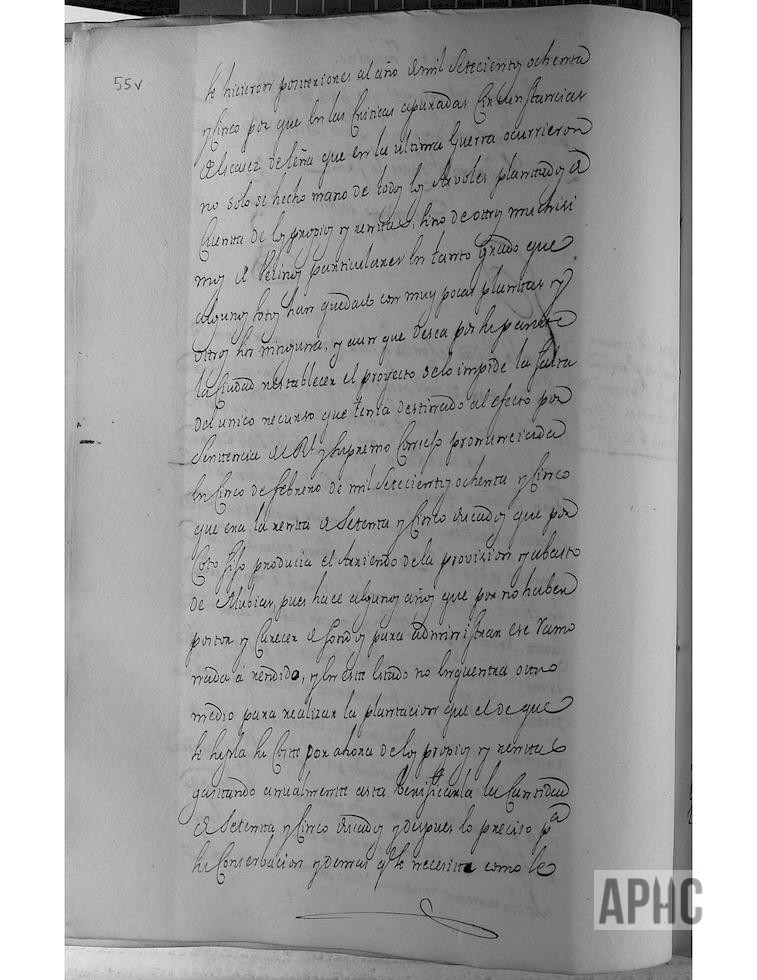 55v
se hicieron posteriores al año de mil Setecientos ochenta
y Cinco por que en las Criticas apuradas Circunstancias
de escasez de leña que en la ultima Guerra ocurrieron
no solo se hecho mano de todos los Arvoles plantados de
Cuenta de los propios y rentas, sino de otros muchisi
mos de Vecinos particulares en tanto grado que
algunos sotos han quedado con muy pocas plantas y
otros sin ninguna, y aun que desea por su parte
la Ciudad restablecer el proyecto se lo impide la falta
del unico recurso que tenia destinado al efecto por
Sentencia del Rl. y Supremo Consejo pronunciada
en Cinco de febrero de mil Setecientos ochenta y Cinco
que era la renta de Setenta y Cinco ducados que por
Coto fijo producia el Arriendo de la provision y abasto
de Alubias, pues hace algunos años que por no haber
postor, y Carecer de fondos para administrar ese ramo
nada á rendido, y en este estado no encuentra otro
medio para realizar la plantacion que el de que
se supla su Coste por ahora de los propios y rentas
gastando anualmente asta Verificarla la Cantidad
de Setenta y Cinco ducados y despues lo preciso pa
su Conserbacion y demas qe se necesite como se
APHC